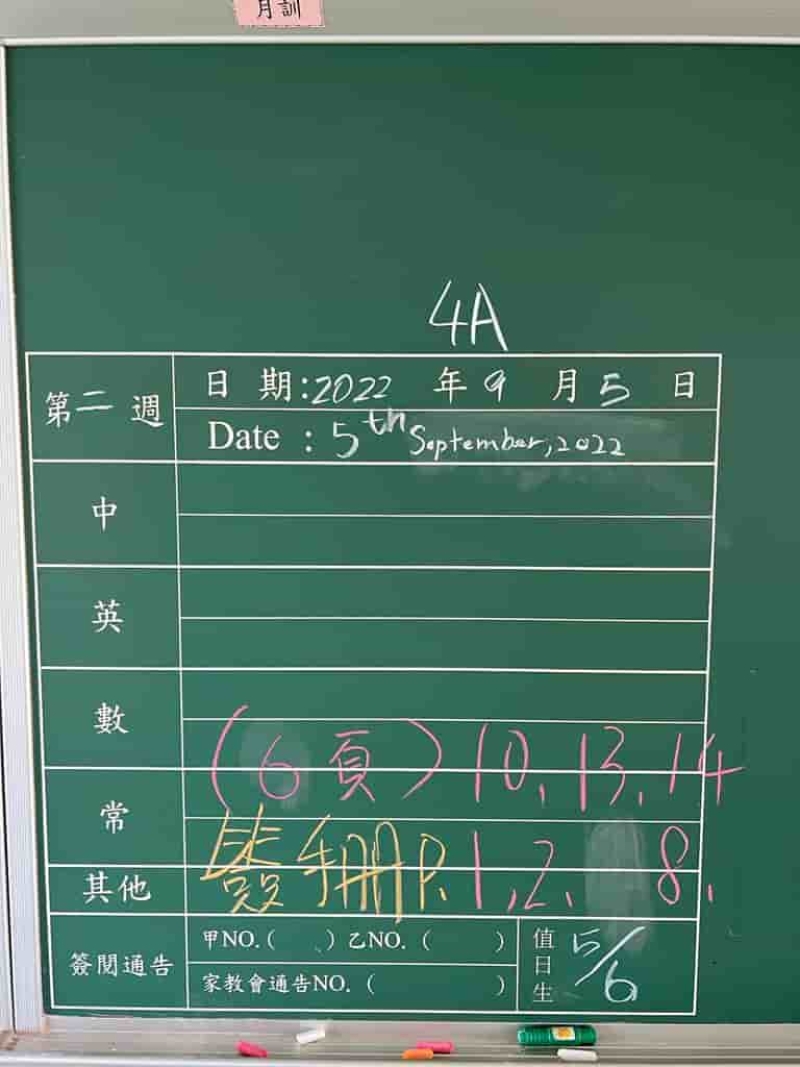 月訓
4A
第二週
日 期:2022 年9 月5 日
Date : 5th September, 2022
中
英
數
(6頁) 10, 13, 14
常
簽手冊P.1, 2. 8.
其他
簽閱通告
甲NO.( 、) 乙NO. ( )
家教會通告NO. ( )
值日生
5/6